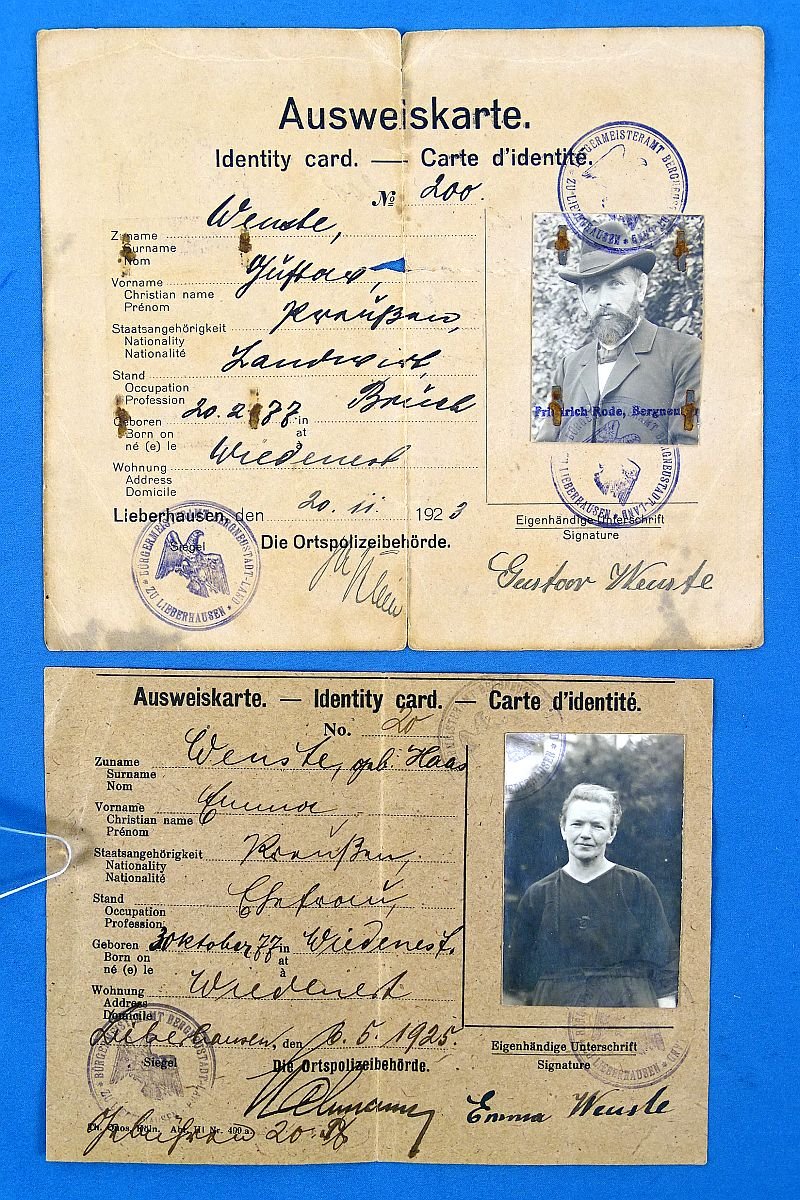 Ausweiskarte.
Identity card. — Carte d'identité.
№ 200.
BÜRGERMEISTERAMT BERGNEUSTADT-LAND * ZU LIEBERHAUSEN *
Zuname Wenste,
Surname
Nom
Vorname Gustav,
Christian name
Prénom
Staatsangehörigkeit Preußen,
Nationality
Nationalité
Stand Landwirt,
Occupation
Profession
Geboren 20.2.77 in Bruch
Born on at
né (e) le à
Wohnung Wiedenest
Address
Domicile
Lieberhausen, den 20. 11. 1923
Siegel Die Ortspolizeibehörde.
BÜRGERMEISTERAMT BERGNEUSTADT-LAND * ZU LIEBERHAUSEN *
Friedrich Rode, Bergneustadt
Eigenhändige Unterschrift
Signature
Gustav Wenste
Ausweiskarte. — Identity card. — Carte d'identité.
No. 20
Zuname Wenste, geb. Haas
Surname
Nom
Vorname Emma,
Christian name
Prénom
Staatsangehörigkeit Preußen,
Nationality
Nationalité
Stand Ehefrau,
Occupation
Profession
Geboren 3 Oktober 77 in Wiedenest.
Born on at
né (e) le à
Wohnung Wiedenest
Address
Domicile
Lieberhausen, den 6. 5. 1925.
Siegel Die Ortspolizeibehörde.
Köln. Abt. III Nr. 400 a.
Gebühren 20
Eigenhändige Unterschrift
Signature
Emma Wenste